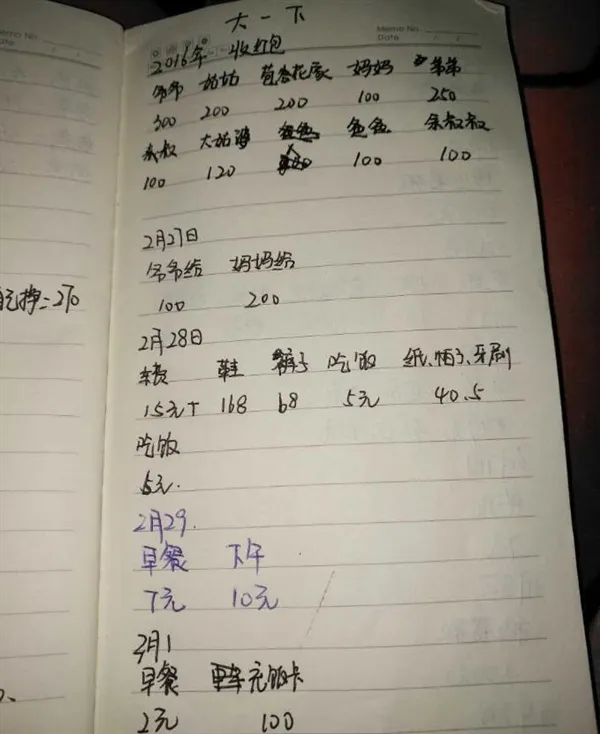 Memo No.
Date / /
Memo No.
Date / /
大一下
2016年 收红包
爷爷 姑姑 苗杏花家 妈妈 弟弟
300 200 200 100 250
叔 大姑 爸爸 爸爸 余叔叔
100 120 100 100
2月27日
爷爷给 妈妈给
100 200
挣=270
2月28日
车费 鞋 裤子 吃饭 纸、帽子、牙刷
15元+ 168 68 5元 40.5
吃饭
5元.
2月29.
早餐 下午
7元 10元
3月1
早餐 充饭卡
2元 100